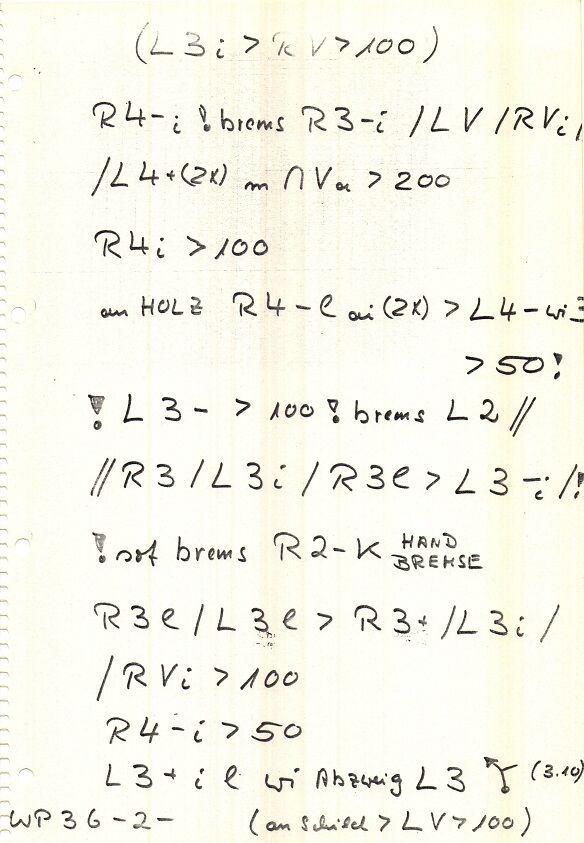 (L3i > RV > 100)
R4-i ! brems R3-i /LV /RVi/
/L4+(2x) m ∩ Va > 200
R4i > 100
am HOLZ R4-l ai (2x) > L4-wi3
> 50!
! L3- > 100 ! brems L2 //
//R3 / L3i / R3l > L3-i/!
! sof brems R2-K HAND BREMSE
R3l / L3l > R3+ /L3i /
/RVi > 100
R4-i > 50
L3+ i l wi Abzweig L3 (3.10)
WP36-2- (an Schild > LV > 100)